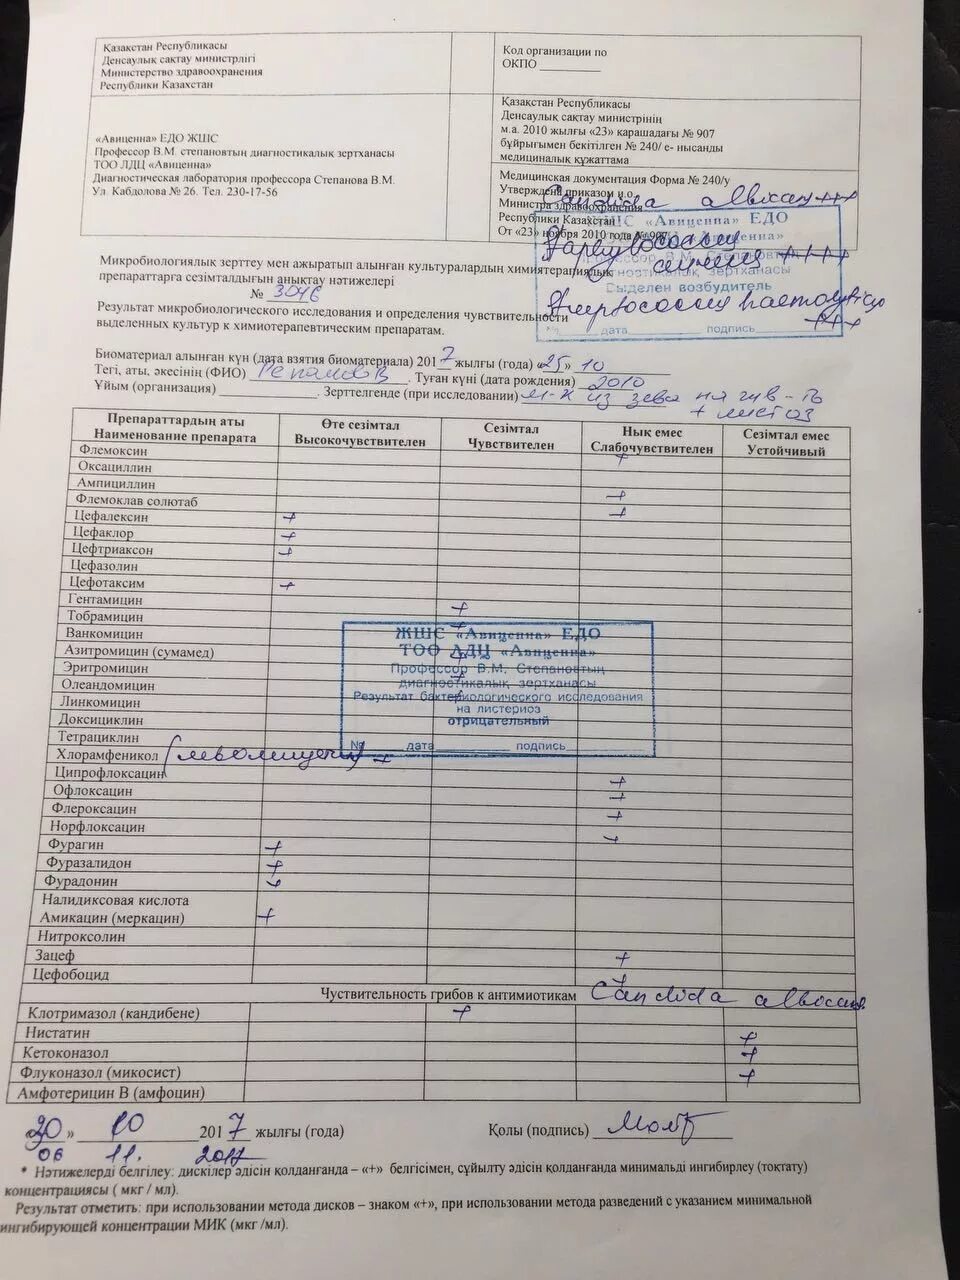 Қазақстан Республикасы
Денсаулық сақтау министрлігі
Министерство здравоохранения
Республики Казахстан
Код организации по
ОКПО
«Авиценна» ЕДО ЖШС
Профессор В.М. степановтың диагностикалық зертханасы
ТОО ЛДЦ «Авиценна»
Диагностическая лаборатория профессора Степанова В.М.
Ул. Кабдолова № 26. Тел. 230-17-56
Қазақстан Республикасы
Денсаулық сақтау министрінің
м.а. 2010 жылғы «23» қарашадағы № 907
бұйрығымен бекітілген № 240/ е- нысанды
медициналық құжаттама
Медицинская документация Форма № 240/у
Утверждена приказом и.о.
Министра здравоохранения
Республики Казахстан
От «23» ноября 2010 года № 907
Candida albicans +++
ЖШС «Авиценна» ЕДО
«Авиценна»
Staphylococcus
aureus ++++
Профессор В.М. Степановтың
диагностикалық зертханасы
Выделен возбудитель
Streptococcus haemolyticus
+++
№ дата подпись
Микробиологиялық зерттеу мен ажыратып алынған культуралардың химиятерапиялық
препараттарға сезімталдығын анықтау нәтижелері
№ 3046
Результат микробиологического исследования и определения чувствительности
выделенных культур к химиотерапевтическим препаратам.
Биоматериал алынған күн (дата взятия биоматериала) 2017 жылғы (года) «25» 10
Тегі, аты, әкесінің (ФИО) . Туған күні (дата рождения) 2010
Ұйым (организация) . Зерттелгенде (при исследовании) м-к из зева на чув-ть
+ листоз
Препараттардың аты
Наименование препарата
Өте сезімтал
Высокочувствителен
Сезімтал
Чувствителен
Нық емес
Слабочувствителен
Сезімтал емес
Устойчивый
Флемоксин
Оксациллин +
Ампициллин
Флемоклав солютаб +
Цефалексин + +
Цефаклор +
Цефтриаксон +
Цефазолин
Цефотаксим +
Гентамицин +
Тобрамицин +
Ванкомицин
Азитромицин (сумамед) +
Эритромицин +
Олеандомицин +
Линкомицин
Доксициклин
Тетрациклин
Хлорамфеникол (левомицетин) +
Ципрофлоксацин +
Офлоксацин +
Флероксацин +
Норфлоксацин +
Фурагин +
Фуразалидон +
Фурадонин +
Налидиксовая кислота
Амикацин (меркацин) +
Нитроксолин
Зацеф +
Цефобоцид +
ЖШС «Авиценна» ЕДО
ТОО ЛДЦ «Авиценна»
Профессор В.М. Степановтың
диагностикалық зертханасы
Результат бактериологического исследования
на листериоз
отрицательный
№ дата подпись
Чуствительность грибов к антимиотикам Candida albicans
Клотримазол (кандибене) +
Нистатин +
Кетоконазол +
Флуконазол (микосист) +
Амфотерицин В (амфоцин)
«30» 10 2017 жылғы (года) Қолы (подпись)
06 11. 2017
* Нәтижелерді белгілеу: дискілер әдісін қолданғанда – «+» белгісімен, сұйылту әдісін қолданғанда минимальді ингибирлеу (тоқтату)
концентрациясы ( мкг / мл).
Результат отметить: при использовании метода дисков – знаком «+», при использовании метода разведений с указанием минимальной
ингибирующей концентрации МИК (мкг /мл).